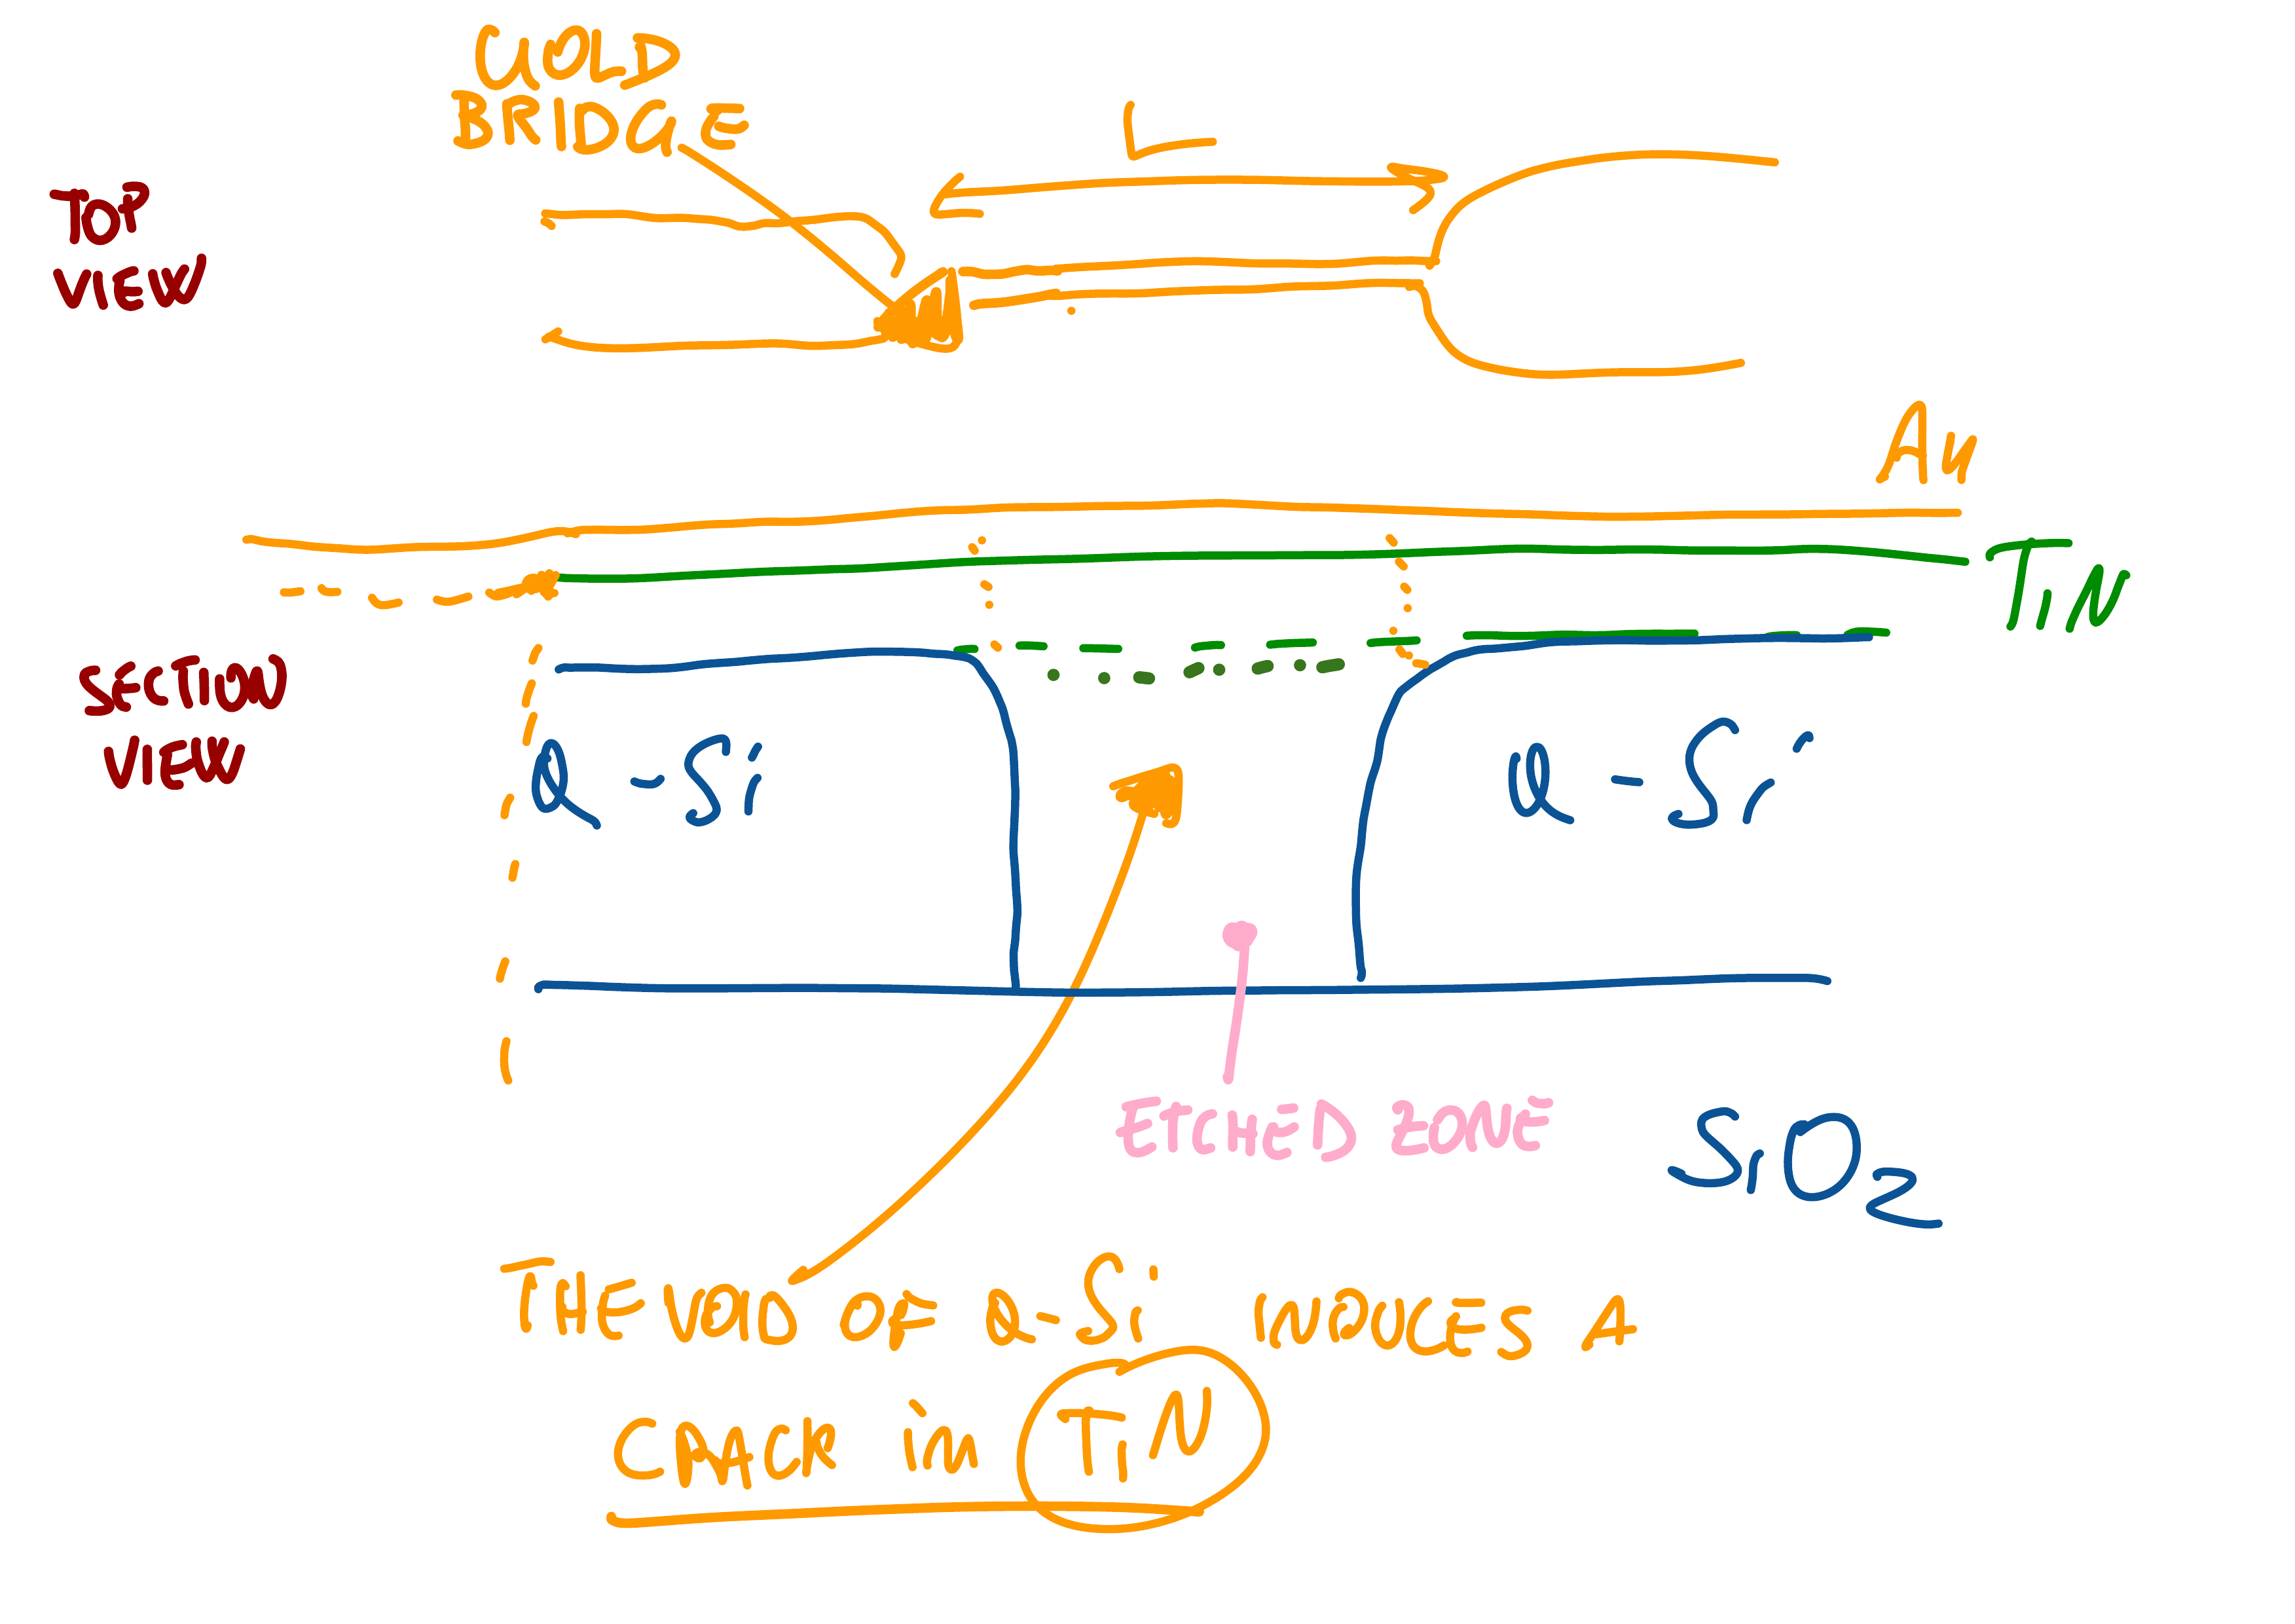 GOLD
BRIDGE
L
TOP
VIEW
Au
TiN
SECTION
VIEW
a-Si
a-Si
ETCHED ZONE
SiO2
THE VOID OF a-Si INDUCES A
CRACK in TiN